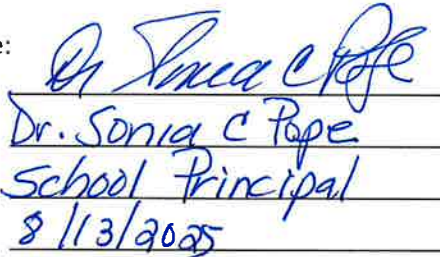 e:
Dr Sonia C Pope
Dr. Sonia C Pope
School Principal
8/13/2025